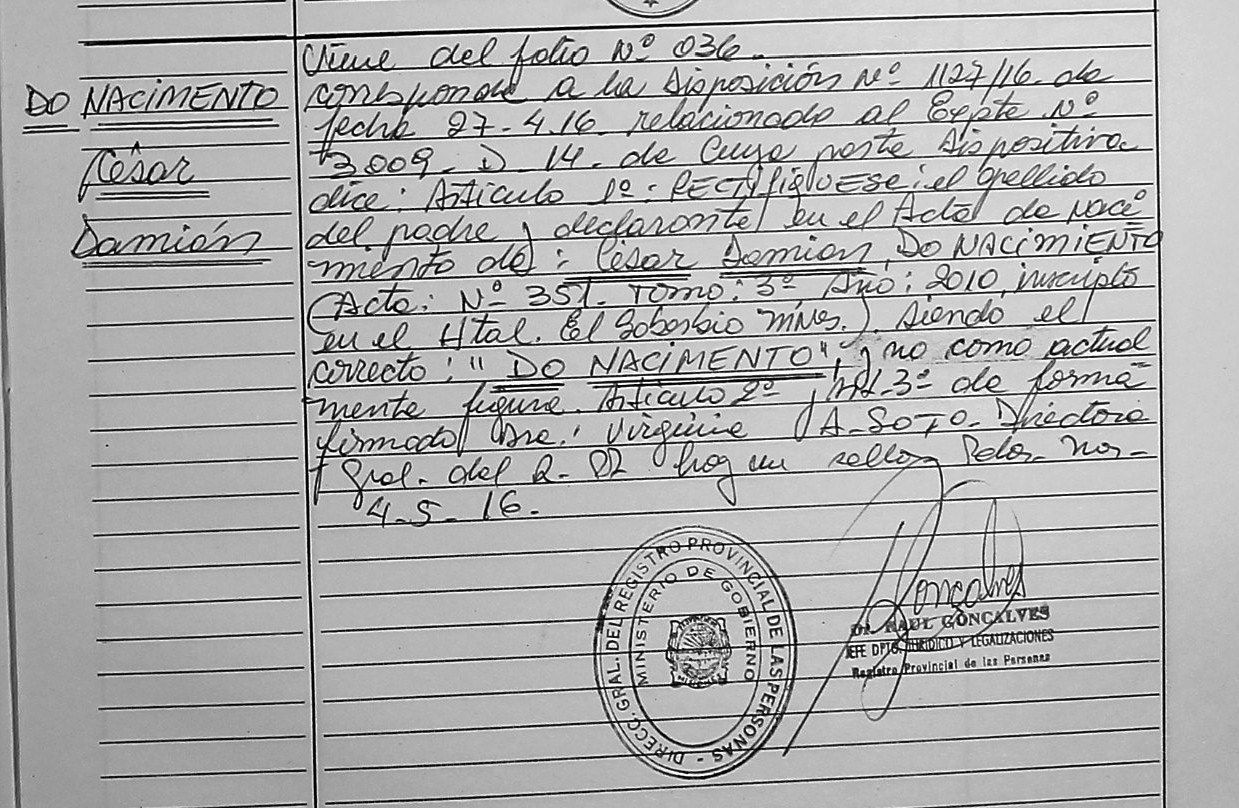 DO NACIMENTO
César
Damián
Viene del folio Nº 036.
corresponde a la Disposición Nº 1127/16. de
fecha 27-4.16 relacionado al Expte Nº
3009-D 14. de cuya parte dispositiva
dice: Articulo 1º: RECTIFIQUESE: el apellido
del padre y declarante en el Acta de naci
miento de: César Damian, DO NACIMIENTO
(Acta: Nº 351. Tomo: 3º Año: 2010, inscripto
en el Htal. El Soberbio Mnes.). siendo el
correcto: "DO NACIMENTO", y no como actual
mente figura. Articulo 2º, Art. 3º de forma
firmado Dra.: Virginia A. SOTO- Directora
Gral. del R. PP hoy un sello. Pdas. Mnes-
4-5-16.
DIRECC. GRAL. DEL REGISTRO PROVINCIAL DE LAS PERSONAS -
MINISTERIO DE GOBIERNO
MISIONES
Goncalves
Dr. RAUL GONCALVES
JEFE DPTO. JURIDICO Y LEGALIZACIONES
Registro Provincial de las Personas